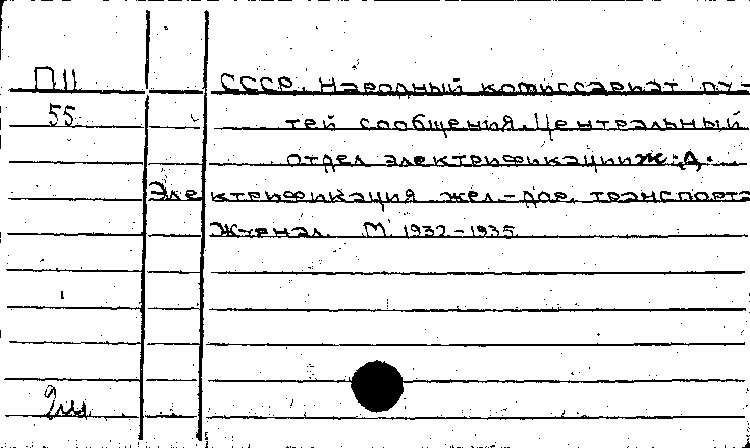 П11 СССР. Народный комиссариат пу-
55 тей сообщения. Центральный
отдел электрификации ж.д.
Электрификация жел.-дор. транспорта
Журнал. М. 1932-1935